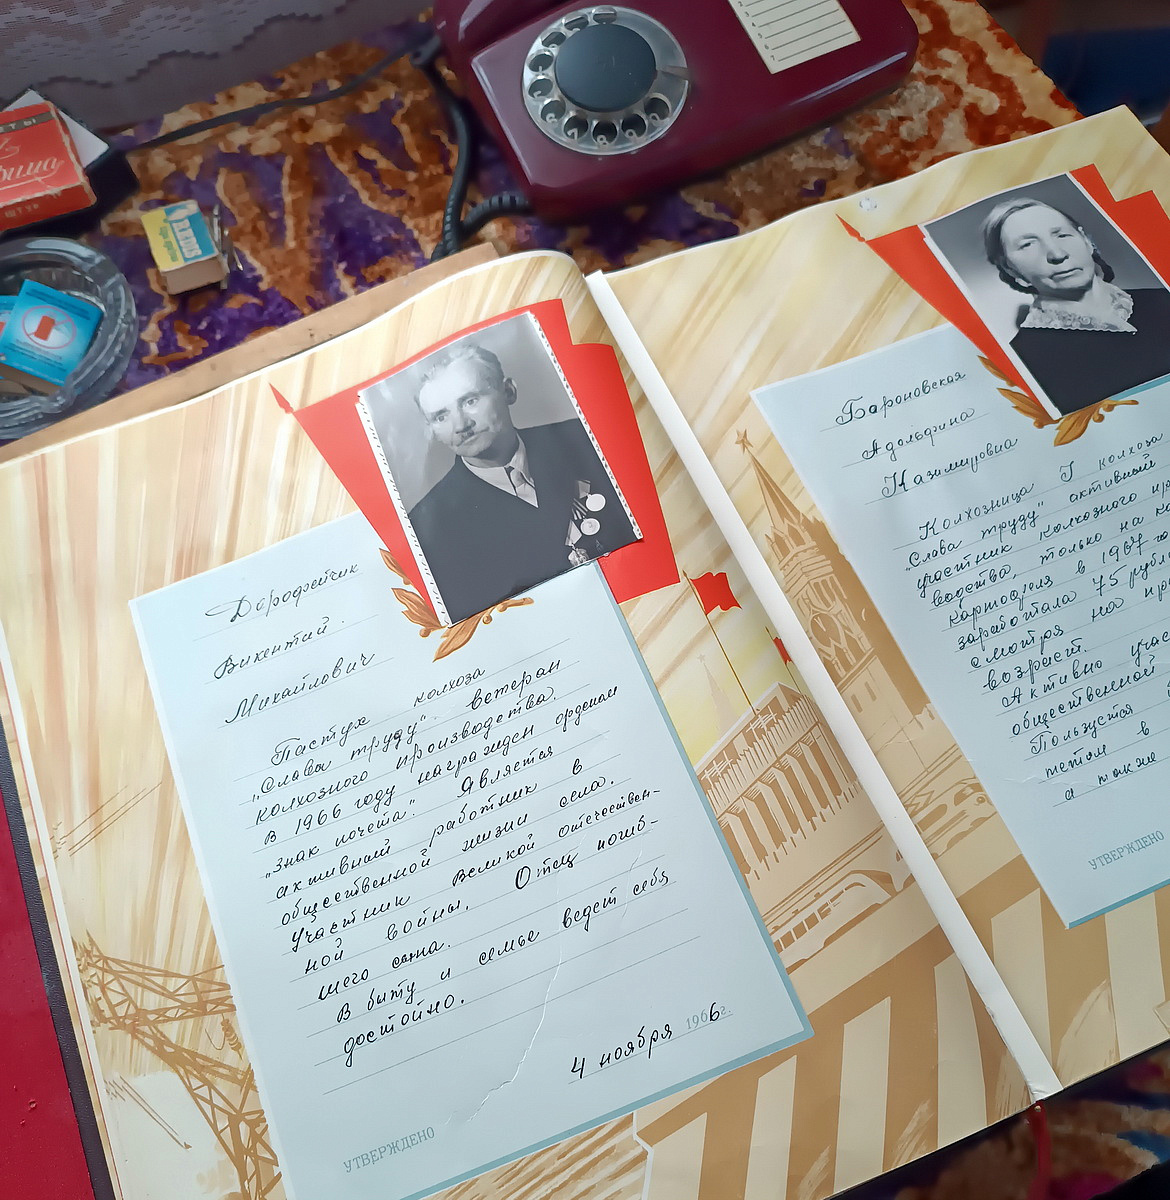 ШТУК
Дорофейчик
Викентий
Михайлович
Пастух колхоза
„Слава труду". ветеран
колхозного производства.
В 1966 году награжден орденом
„знак почета". Является
активный работник в
общественной жизни села.
Участник Великой отечествен-
ной войны. Отец погиб-
шего сына.
В быту и семье ведет себя
достойно.
4 ноября 1966г.
УТВЕРЖДЕНО
Бароновская
Адольфина
Казимировна
Колхозница I колхоза
„Слава труду" активный
участник колхозного
водства, только на
картофеля в 1967
заработала 75
смотря на
возраст.
Активно
общественной
Пользуется
тетом в
а также
УТВЕРЖДЕНО